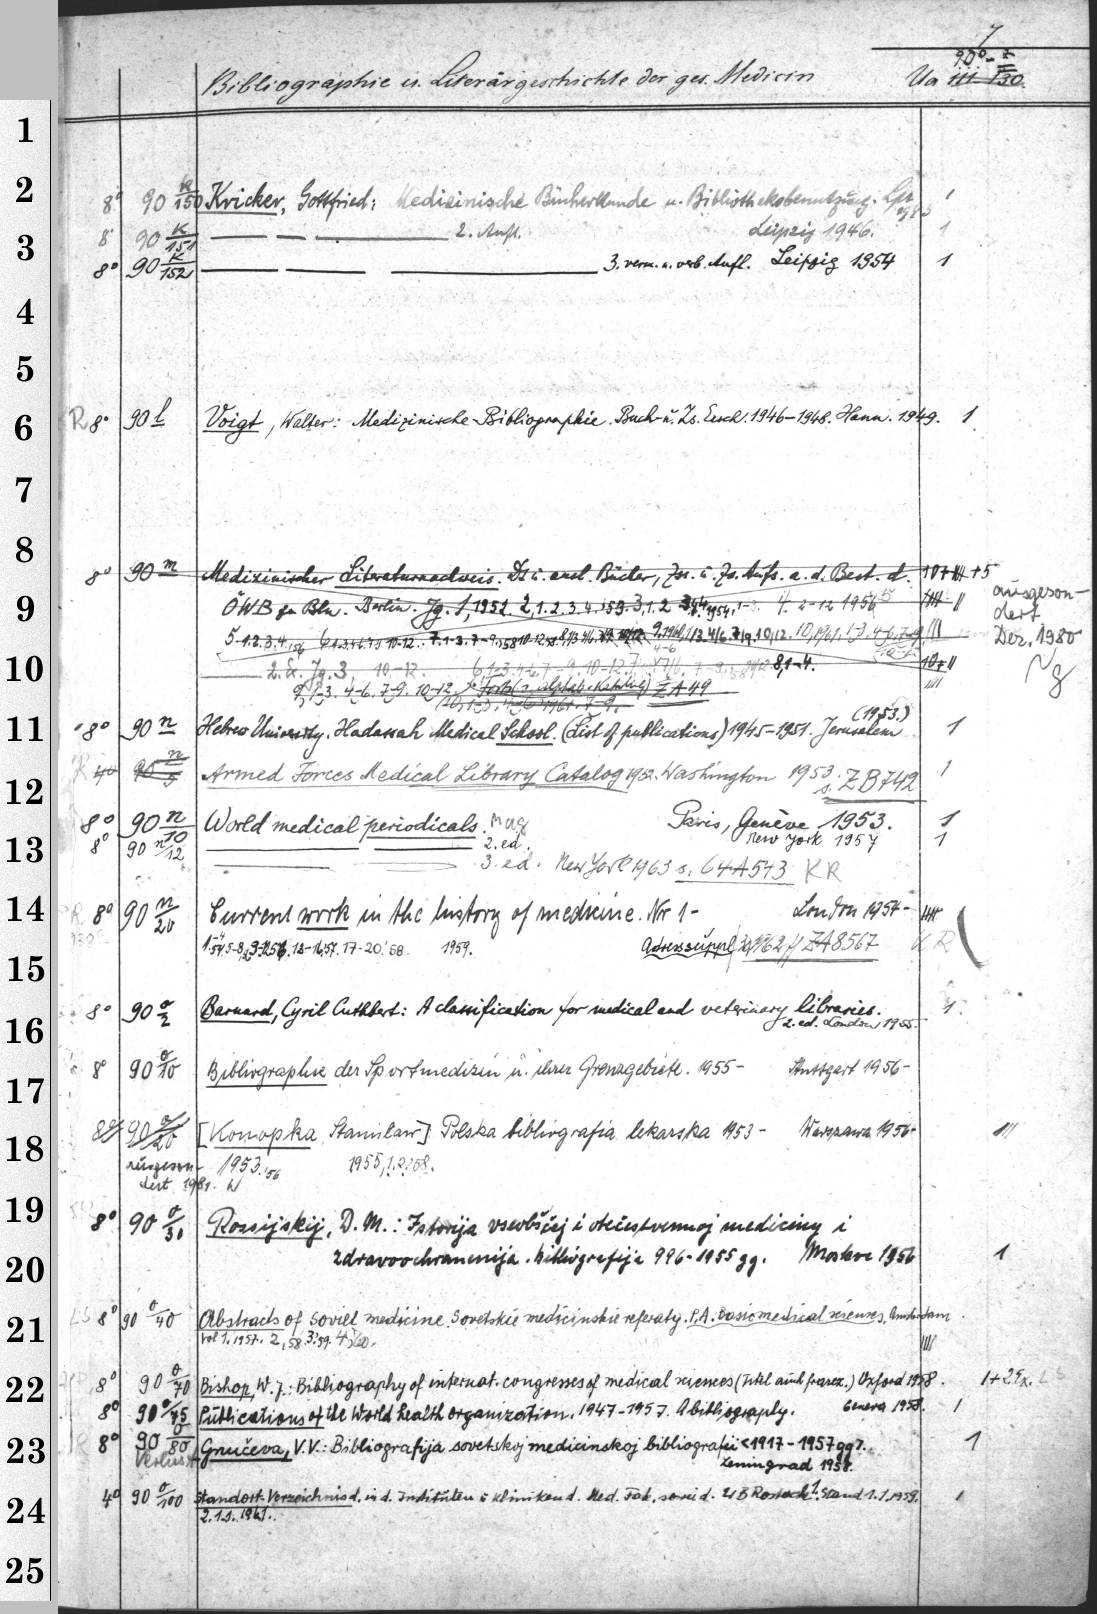 7
Bibliographie u. Literärgeschichte der ges. Medicin Ua 90°-z III 130.
1
2 8° 90 k/150 Kricker, Gottfried: Medizinische Bücherkunde u. Bibliotheksbenutzung. Lpz 1
3 8° 90 k/151 2. Aufl. Leipzig 1946. 1
8° 90 k/152 3. verm. u. verb. Aufl. Leipzig 1954 1
4
5
6 R 8° 90 l Voigt, Walter: Medizinische Bibliographie. Buch- u. Zs. Ersch. 1946-1948. Hann. 1949. 1
7
8
8° 90 m Medizinischer Literaturnachweis. Dt. u. ausl. Bücher, Zss. u. Zs. Aufs. a. d. Best. d. +5
9 ÖWB zu Bln. Berlin. Jg. 1, 1952 2, 1.2.3.4.'53. 3, 1.2 1954. 4. 2-12 1956 ausgeson-
dert
Dez. 1980
10 2. Ex. Jg. 3, 10-12. 8, 1-4.
9, 1-3. 4-6. 7-9. 10-12. Forts. (s. alphab. Katalog) ZA 49
11 8° 90 n Hebrew University. Hadassah Medical School. (List of publications) 1945-1951. Jerusalem (1953.) 1
12 R 4° 90 n/5 Armed Forces Medical Library Catalog 1952. Washington 1953 s. ZB 742 1
8° 90 n/10 World medical periodicals. Mag Paris, Genève 1953. 1
13 8° 90 n/12 2. ed. New York 1957 1
3. ed. New York 1963 s. 64 A 543 KR
14 R 8° 90 n/20 Current work in the history of medicine. Nr 1- London 1954-
17-20.'58. 1959. Adress.suppl. 1962 ff ZA 8567 KR
15
16 8° 90 o/2 Barnard, Cyril Cuthbert: A classification for medical and veterinary libraries. 1.
2. ed. London 1955.
17 8° 90 o/10 Bibliographie der Sportmedizin u. ihrer Grenzgebiete. 1955- Stuttgart 1956-
18 8° 90 o/20 [Konopka, Stanislaw] Polska bibliografia lekarska 1953- Warszawa 1956- III
ausgeson- 1953.'56 1955,1.2,'58.
dert 1981.
19 8° 90 o/30 Rossijskij, D. M.: Istorija vseobščej i otečestvennoj mediciny i
20 zdravoochranenija. Bibliografija 996-1955 gg. Moskva 1956 1
21 LS 8° 90 o/40 Abstracts of Soviet medicine. Sovetskie medicinskie referaty. P.A. Basic medical sciences. Amsterdam
Vol 1, 1957. 2,'58. 3,'59. 4,'60. IIII
22 8° 90 o/70 Bishop, W. J.: Bibliography of internat. congresses of medical sciences (Titel auch franz.) Oxford 1958. 1+2 Ex. LS
8° 90 o/75 Publications of the World health organization. 1947-1957. A bibliography. Geneva 1958. 1
23 8° 90 o/80 Gnučeva, V.V.: Bibliografija sovetskoj medicinskoj bibliografii <1917-1957 gg>. 1
Verlust Leningrad 1958.
24 4° 90 o/100 Standort-Verzeichnis d. in d. Instituten u. Kliniken d. Med. Fak. sowie d. UB Rostock. Stand 1.1.1959. 1
2. 1.1.1961.
25